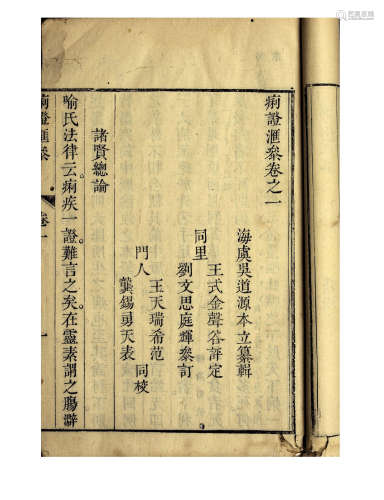 痢證滙叅卷之一
海虞吳道源本立纂輯
王式金聲谷評定
同里
劉文思庭輝叅訂
王天瑞希范
門人 同校
龔錫勇天表
諸賢總論
喻氏法律云痢疾一證難言之矣。在靈素謂之腸澼
痢證滙叅 卷一 一